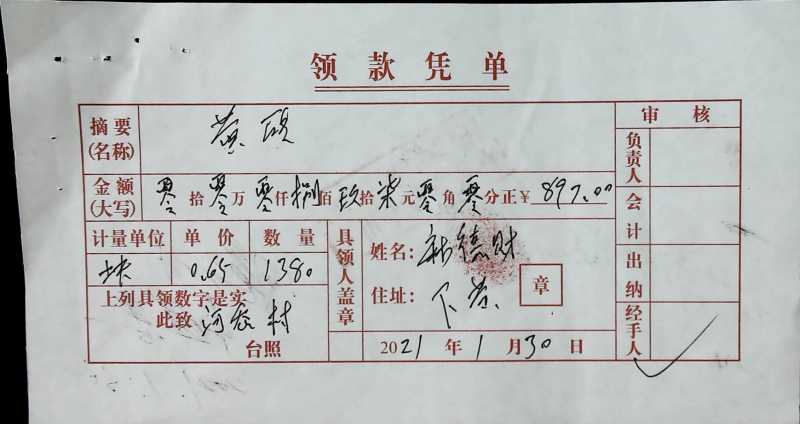 领款凭单
摘要(名称) 黄
审核
负责人
会计
出纳
经手人
金额(大写) 零拾零万零仟捌佰玖拾柒元零角零分正¥897.00
计量单位 单价 数量
块 0.65 1380
上列具领数字是实
此致 河 村
台照
具领人盖章
姓名： 德财
住址： 下
章
2021年1月30日